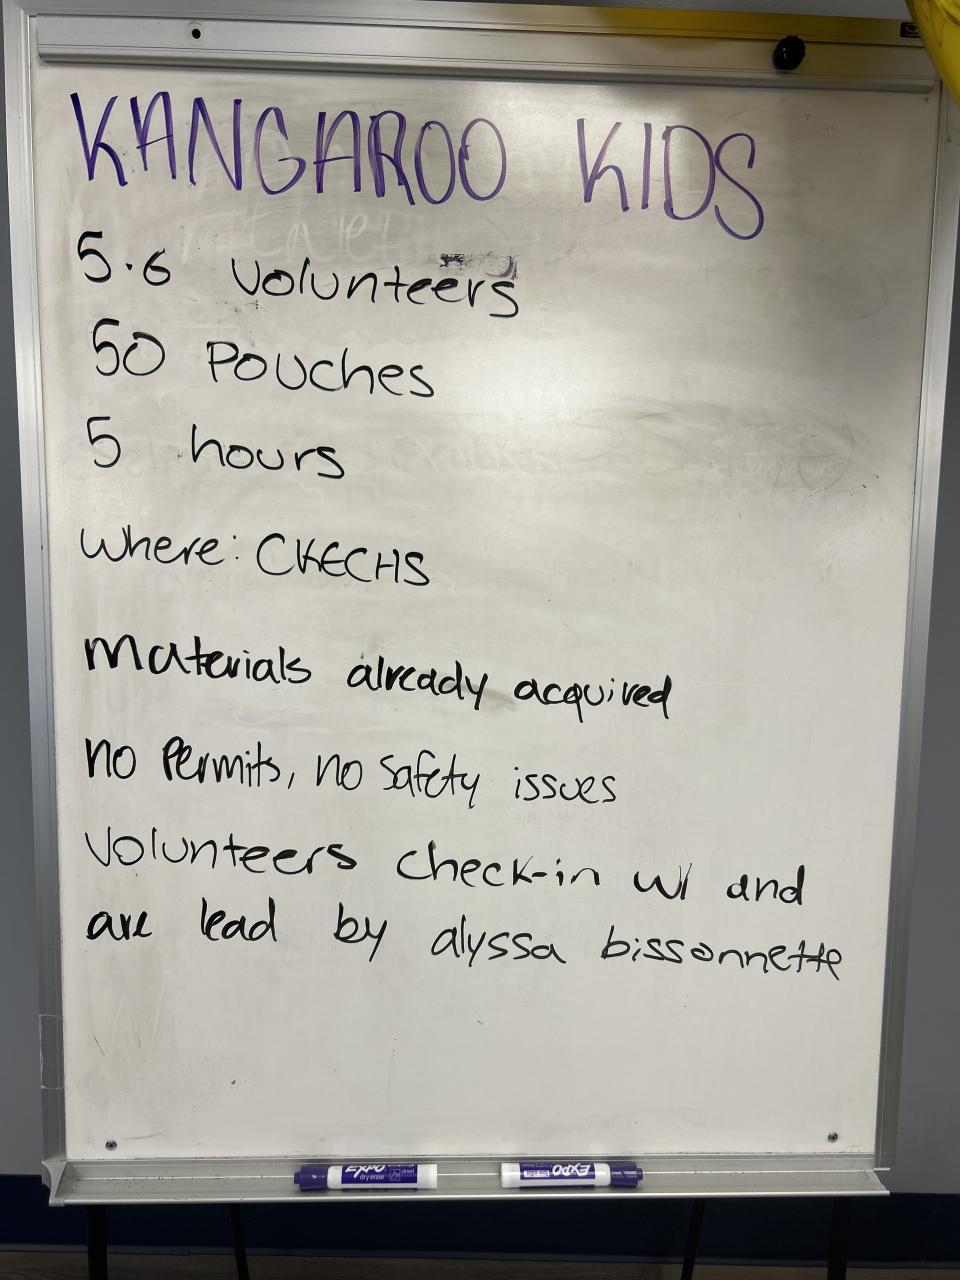 KANGAROO KIDS
5.6 Volunteers
50 Pouches
5 hours
where: CKECHS
Materials already acquired
no Permits, no safety issues
Volunteers check-in w/ and
are lead by alyssa bissonnette
EXPO
dry erase
EXPO